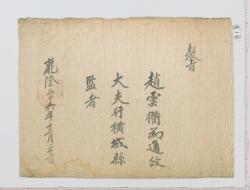 敎旨
趙雲衢爲通政
大夫行橫城縣
監者
乾隆
年
月
日